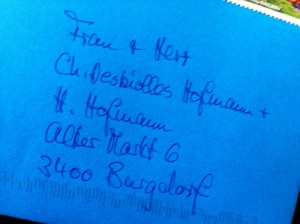 Frau + Herr
Ch. Desbiolles Hofmann +
H. Hofmann
Alter Markt 6
3400 Burgdorf